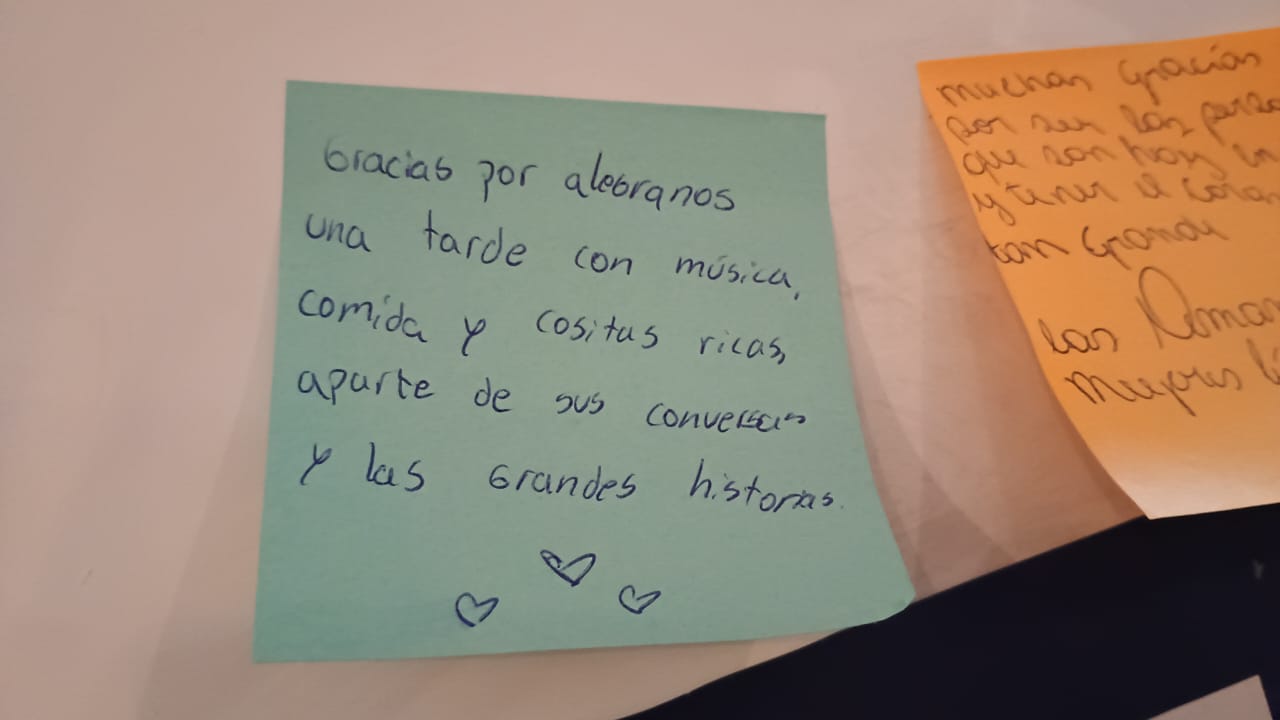 Gracias por alegranos
una tarde con música,
comida y cositas ricas,
aparte de sus conversas
y las grandes historias.
muchas gracias
por ser las
que son hoy
y tener el
tan grande
las
mujeres